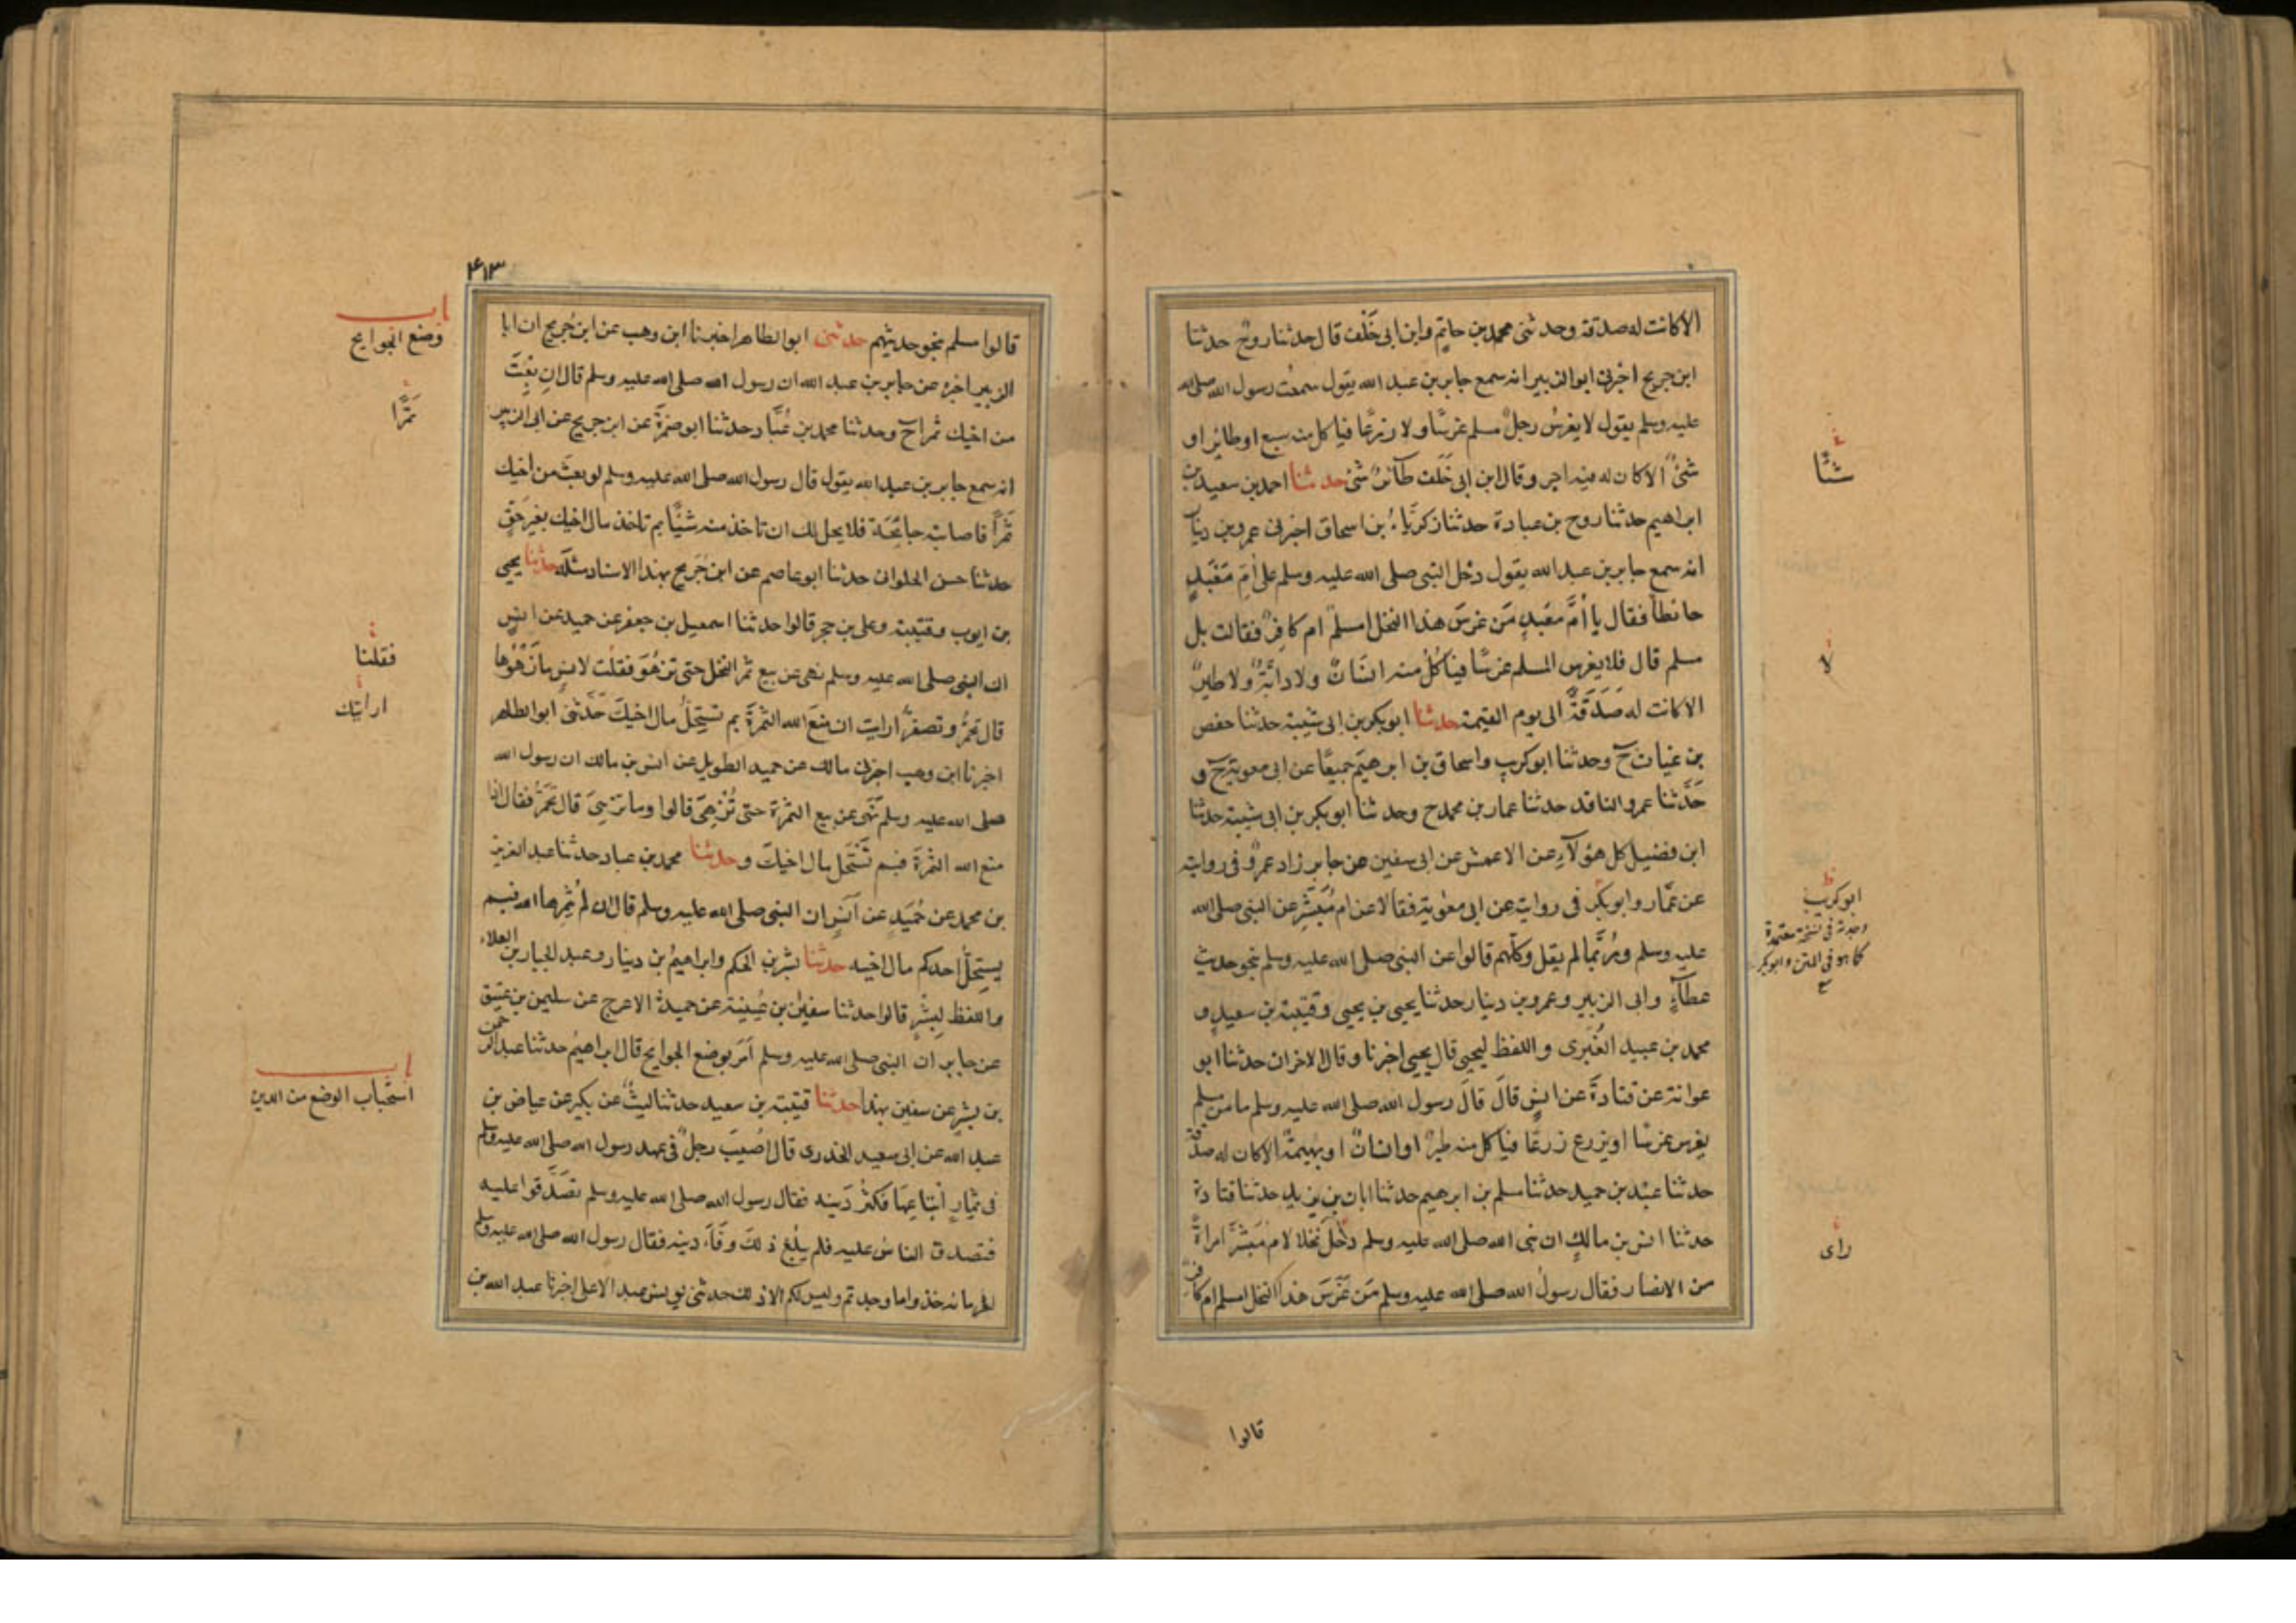 الا كانت له صدقة وحدثنى محمد بن حاتم وابن ابى خلف قالا حدثنا روح حدثنا
ابن جريج اخبرنى ابو الزبير انه سمع جابر بن عبد الله يقول سمعت رسول الله صلى الله
عليه وسلم يقول لا يغرس رجل مسلم غرسًا ولا زرعًا فياكل منه سبع او طائر او
شئ الا كان له فيه اجر وقال ابن ابى خلف طائر شئ حدثنا احمد بن سعيد بن
ابراهيم حدثنا روح بن عبادة حدثنا زكرياء بن اسحاق اخبرنى عمرو بن دينار
انه سمع جابر بن عبد الله يقول دخل النبى صلى الله عليه وسلم على ام معبد
حائطا فقال يا ام معبد من غرس هذا النخل امسلم ام كافر فقالت بل
مسلم قال فلا يغرس المسلم غرسًا فياكل منه انسان ولا دابة ولا طير
الا كانت له صدقة الى يوم القيمة حدثنا ابو بكر بن ابى شيبة حدثنا حفص
بن غياث ح وحدثنا ابو كريب واسحاق بن ابرهيم جميعًا عن ابى معوية ح و
حدثنا عمرو الناقد حدثنا عمار بن محمد ح وحدثنا ابو بكر بن ابى شيبة حدثنا
ابن فضيل كل هؤلاء عن الاعمش عن ابى سفين عن جابر زاد عمرو فى روايته
عن عمار وابو بكر فى روايته عن ابى معوية فقالا عن ام مبشر عن النبى صلى الله
عليه وسلم وربما لم يقل وكلهم قالوا عن النبى صلى الله عليه وسلم بنحو حديث
عطاء وابى الزبير وعمرو بن دينار حدثنا يحيى بن يحيى وقتيبة بن سعيد و
محمد بن عبيد الغبرى واللفظ ليحيى قال يحيى اخبرنا وقال الاخران حدثنا ابو
عوانة عن قتادة عن انس قال قال رسول الله صلى الله عليه وسلم ما من مسلم
يغرس غرسًا او يزرع زرعًا فياكل منه طير او انسان او بهيمة الا كان له صدقة
حدثنا عبد بن حميد حدثنا مسلم بن ابرهيم حدثنا ابان بن يزيد حدثنا قتادة
حدثنا انس بن مالك ان نبى الله صلى الله عليه وسلم دخل نخلا لام مبشر امراة
من الانصار فقال رسول الله صلى الله عليه وسلم من غرس هذا النخل امسلم ام كافر
قالوا
لا
ابو كريب
وجدته فى نسخة معتمدة
كما هو فى المتن وابو بكر
راى
٤١٣
قالوا مسلم بنحو حديثهم حدثنى ابو الطاهر اخبرنا ابن وهب عن ابن جريج ان ابا
الزبير اخبره عن جابر بن عبد الله ان رسول الله صلى الله عليه وسلم قال ان بعت
من اخيك ثمرا ح وحدثنا محمد بن عباد حدثنا ابو ضمرة عن ابن جريج عن ابى الزبير
انه سمع جابر بن عبد الله يقول قال رسول الله صلى الله عليه وسلم لو بعت من اخيك
ثمرًا فاصابته جائحة فلا يحل لك ان تاخذ منه شيئًا بم تاخذ مال اخيك بغير حق
حدثنا حسن الحلوانى حدثنا ابو عاصم عن ابن جريج بهذا الاسناد مثله حدثنا يحيى
بن ايوب وقتيبة وعلى بن حجر قالوا حدثنا اسمعيل بن جعفر عن حميد عن انس
ان النبى صلى الله عليه وسلم نهى عن بيع ثمر النخل حتى تزهو فقلت لانس ما زهوها
قال تحمر وتصفر ارايت ان منع الله الثمرة بم تستحل مال اخيك حدثنى ابو الطاهر
اخبرنا ابن وهب اخبرنى مالك عن حميد الطويل عن انس بن مالك ان رسول الله
صلى الله عليه وسلم نهى عن بيع الثمرة حتى تزهى قالوا وما تزهى قال تحمر فقال اذا
منع الله الثمرة فبم تستحل مال اخيك وحدثنا محمد بن عباد حدثنا عبد العزيز
بن محمد عن حميد عن انس ان النبى صلى الله عليه وسلم قال ان لم يثمرها الله فبم
يستحل احدكم مال اخيه حدثنا بشر بن الحكم وابراهيم بن دينار وعبد الجبار بن العلاء
واللفظ لبشر قالوا حدثنا سفين بن عيينة عن حميد الاعرج عن سليمن بن عتيق
عن جابر ان النبى صلى الله عليه وسلم امر بوضع الجوايح قال ابراهيم حدثنا عبد الرحمن
بن بشر عن سفين بهذا حدثنا قتيبة بن سعيد حدثنا ليث عن بكير عن عياض بن
عبد الله عن ابى سعيد الخدرى قال اصيب رجل فى عهد رسول الله صلى الله عليه وسلم
فى ثمار ابتاعها فكثر دينه فقال رسول الله صلى الله عليه وسلم تصدقوا عليه
فتصدق الناس عليه فلم يبلغ ذلك وفاء دينه فقال رسول الله صلى الله عليه وسلم
لغرمائه خذوا ما وجدتم وليس لكم الا ذلك حدثنى يونس بن عبد الاعلى اخبرنا عبد الله بن
باب
وضع الجوايح
ثمرًا
فقلنا
ارايتك
باب
استحباب الوضع من الدين